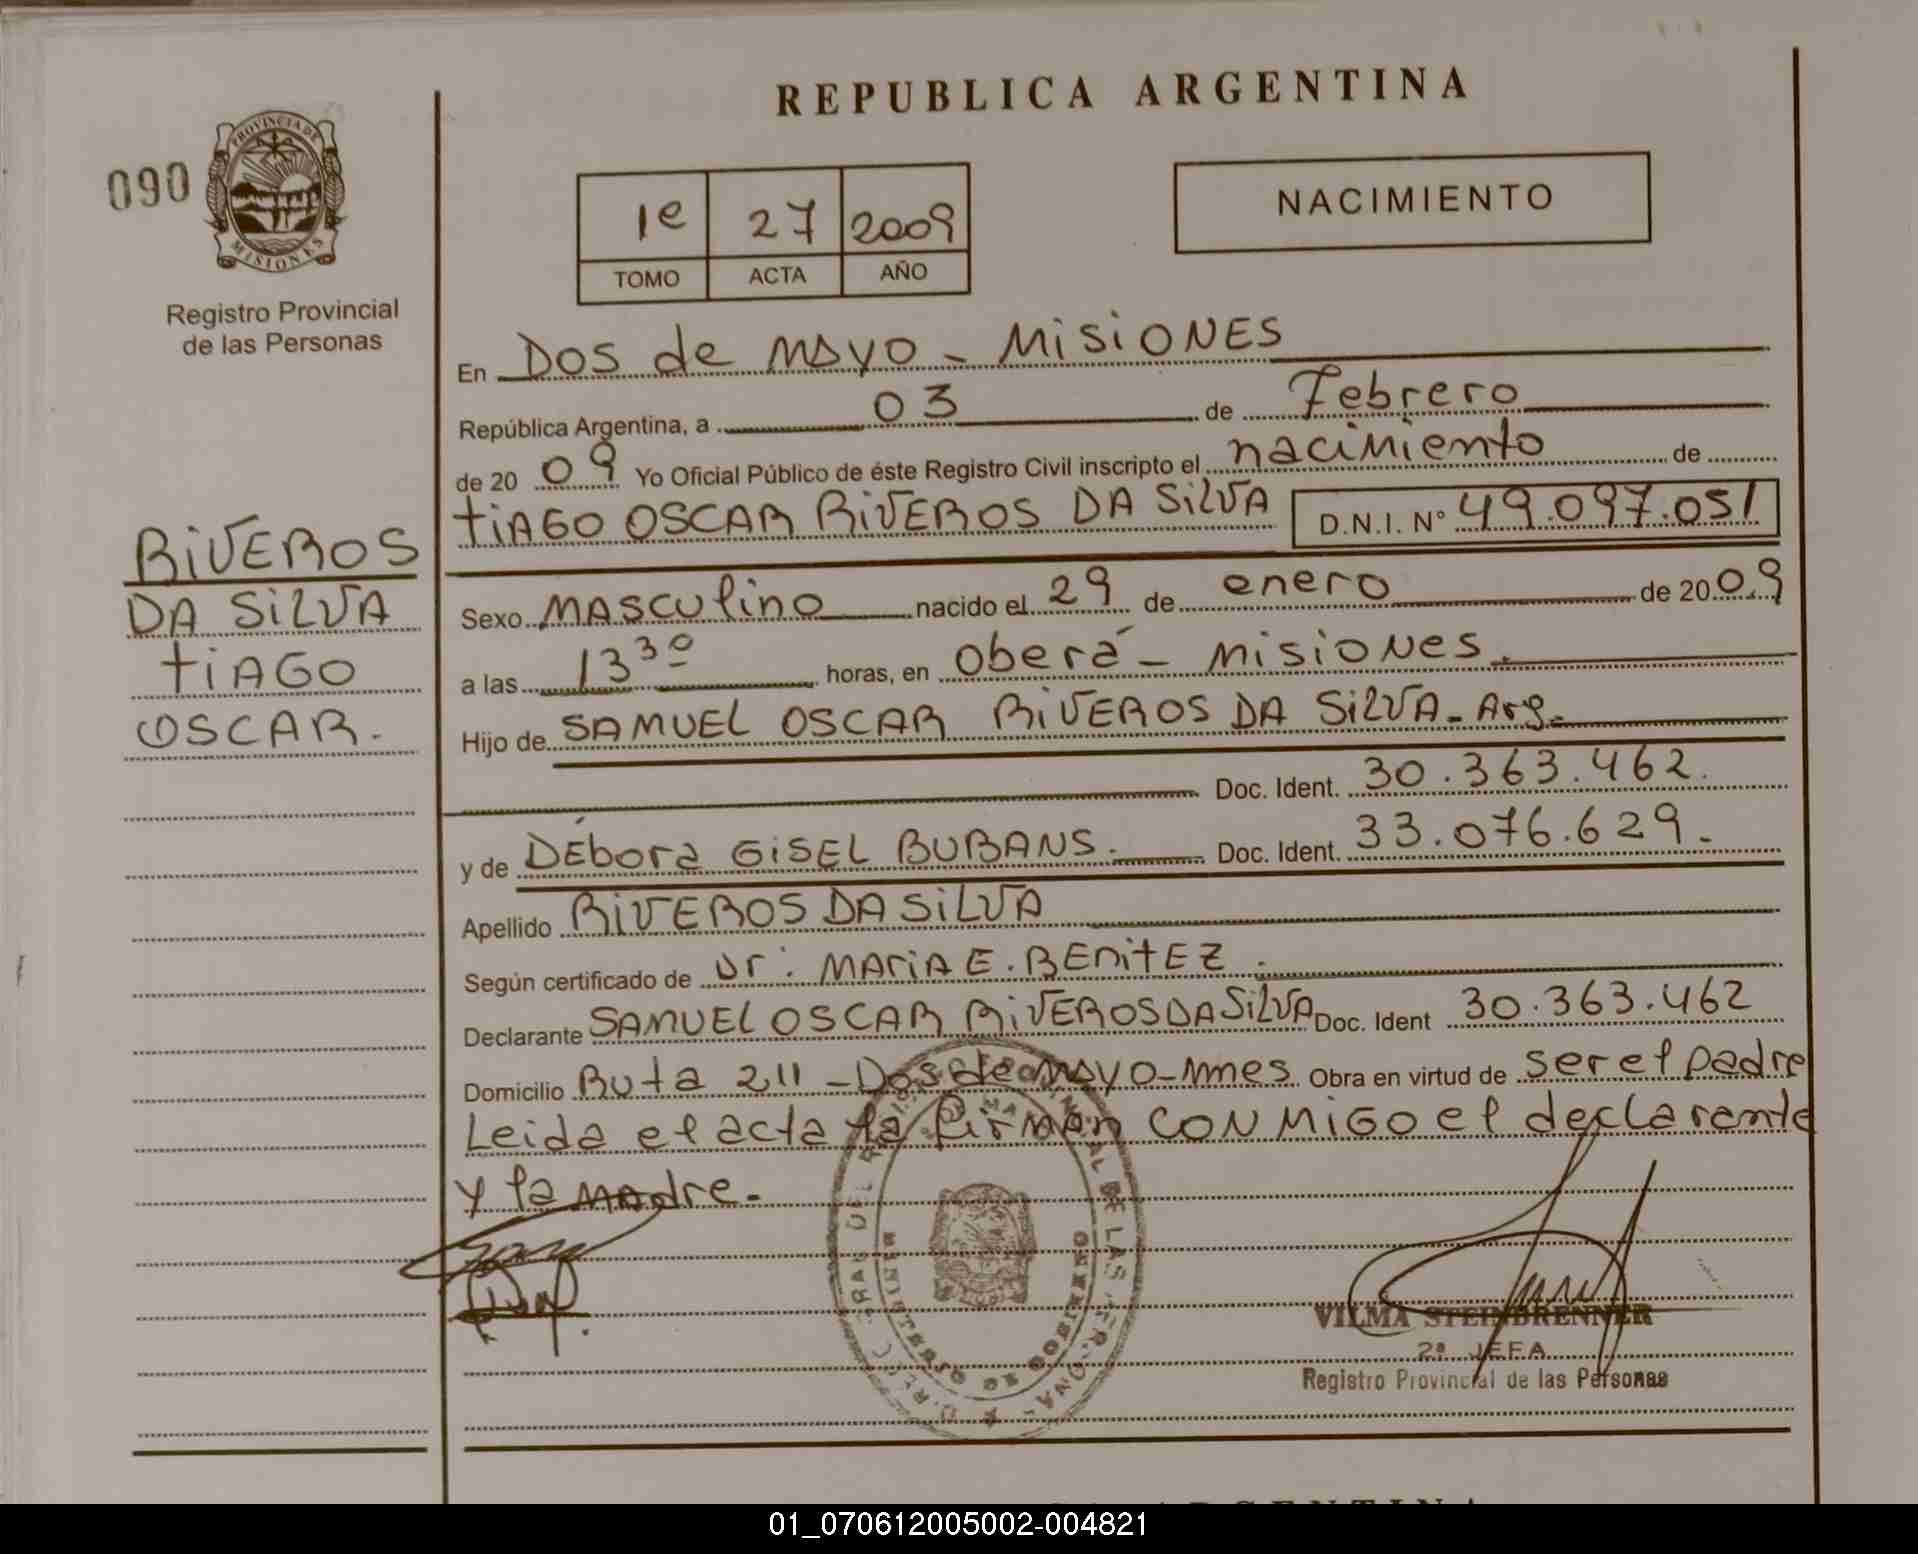 REPUBLICA ARGENTINA
090
PROVINCIA DE
MISIONES
Registro Provincial
de las Personas
1e 27 2009
TOMO ACTA AÑO
NACIMIENTO
En Dos de mayo - MISIONES
República Argentina, a 03 de Febrero
de 2009 Yo Oficial Público de éste Registro Civil inscripto el nacimiento de
TIAGO OSCAR RIVEROS DA SILVA D.N.I. N° 49.097.051
RIVEROS
DA SILVA
TIAGO
OSCAR.
Sexo Masculino nacido el 29 de enero de 2009
a las 13 30 horas, en Oberá - Misiones.
Hijo de SAMUEL OSCAR RIVEROS DA SILVA - Arg.
Doc. Ident. 30.363.462.
y de DÉbora GISEL BUBANS. Doc. Ident. 33.076.629.-
Apellido RIVEROS DA SILVA
Según certificado de Dr: MARIA E. BENITEZ.
Declarante SAMUEL OSCAR RIVEROS DA SILVA Doc. Ident 30.363.462
Domicilio Ruta 211 - Dos de mayo - Mnes Obra en virtud de ser el padre
Leida el acta la firman CONMIGO el declarante
y la madre.-
MINISTERIO DE GOBIERNO
VILMA STEINBRENNER
2ª JEFA
Registro Provincial de las Personas
ARGENTINA
01_070612005002-004821